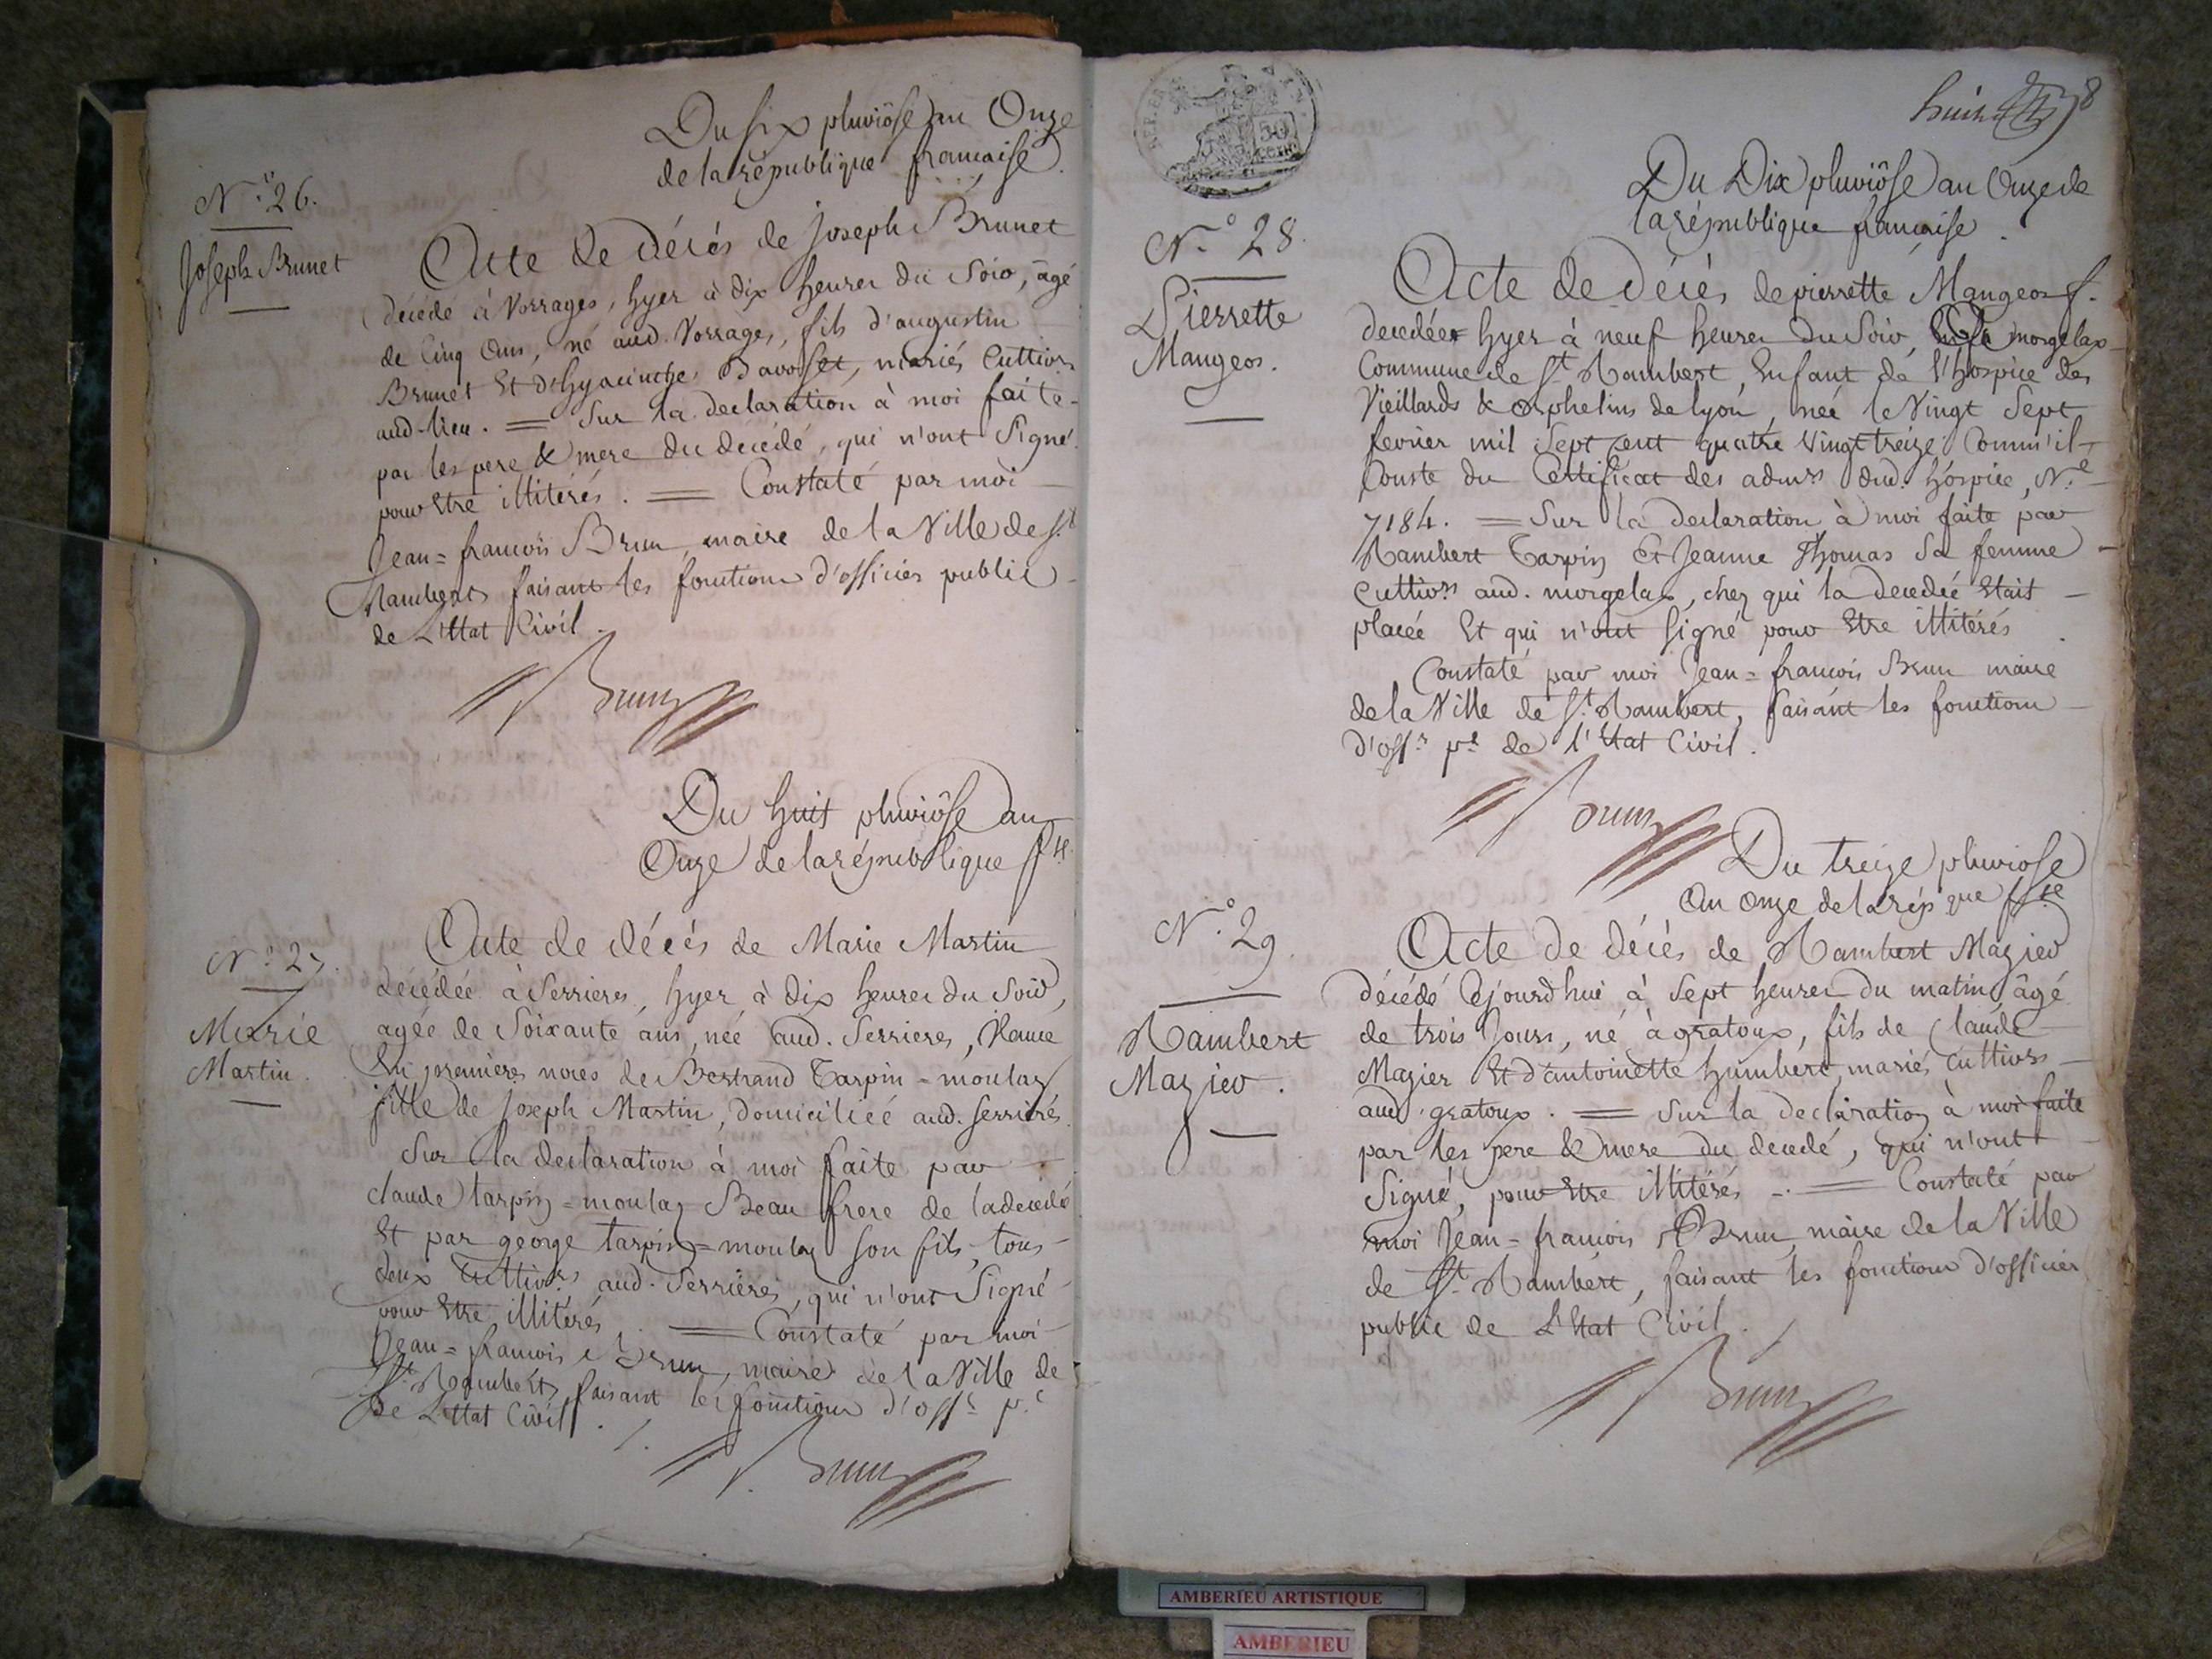 Du six pluviôse an Onze
de la république française.
N.º 26.
Joseph Brunet
Acte de décés de Joseph Brunet
décédé à Vorrages, hyer à dix heures du Soir, âgé
de Cinq Ans, né aud. Vorrages, fils d'augustin
Brunet Et d'hyacinthe Bavoset, mariés Cultivrs
aud-lieu. = Sur la declaration à moi faite
par les pere & mere du décédé, qui n'ont Signé
pour Etre illitérés. = Constaté par moi
Jean=francois Brun, maire de la Ville de St
Rambert, faisant les fonctions d'officier public
de L'Etat Civil.
Brun
Du huit pluviôse an
Onze de la république
N.º 27.
Marie
Martin.
Acte de décés de Marie Martin
décédée à Serrieres, hyer à dix heures du Soir,
agée de Soixante ans, née aud. Serrieres, Veuve
En premières noces de Bertrand Tarpin=moulaz
fille de Joseph Martin, domiciliée aud. serrieres.
Sur la declaration à moi faite par
claude tarpin=moulaz Beau frere de la decedé
Et par george tarpin=moulaz son fils, tous
deux Cultivrs aud. Serrières, qui n'ont Signé
pour Etre illitérés. = Constaté par moi
Jean=francois Brun, maire de la Ville de
St Rambert, faisant les fonctions d'offr pc
de L'Etat Civil.
Brun
50
cent
huit
8
Du Dix pluviôse an Onze de
la république française.
N.º 28.
Pierrette
Mangeos.
Acte de décés de pierrette Mangeos f.
decedée hyer à neuf heures du Soir, morgelas
Commune de St Rambert, Enfant de l'hospice des
Vieillards & Orphelins de lyon, née le Vingt Sept
fevrier mil Sept cent quatre Vingt treize Comm'il
Conste du Certificat des admrs dud. hospice, N.º
7184. = Sur la declaration à moi faite par
Rambert Tarpin Et Jeanne Thomas Sa femme
Cultivrs aud. morgelas, chez qui la decedée Etait
placée Et qui n'ont Signé pour Etre illitérés.
Constaté par moi Jean=francois Brun maire
de la Ville de St Rambert, faisant les fonctions
d'offr pc de l'Etat Civil.
Brun
Du treize pluviose
An onze de la répque fse
N.º 29.
Rambert
Mazier.
Acte de décés de Rambert Mazier
décédé Ajourdhui à Sept heures du matin, âgé
de trois Jours, né à gratoux, fils de Claude
Mazier Et d'antoinette humbert, mariés Cultivrs
aud. gratoux. = Sur la declaration à moi faite
par les pere & mere du decedé, qui n'ont
Signé, pour Etre illitérés. = Constaté par
moi Jean=francois Brun, maire de la Ville
de St Rambert, faisant les fonctions d'officier
public de L'Etat Civil.
Brun
AMBERIEU ARTISTIQUE
AMBERIEU